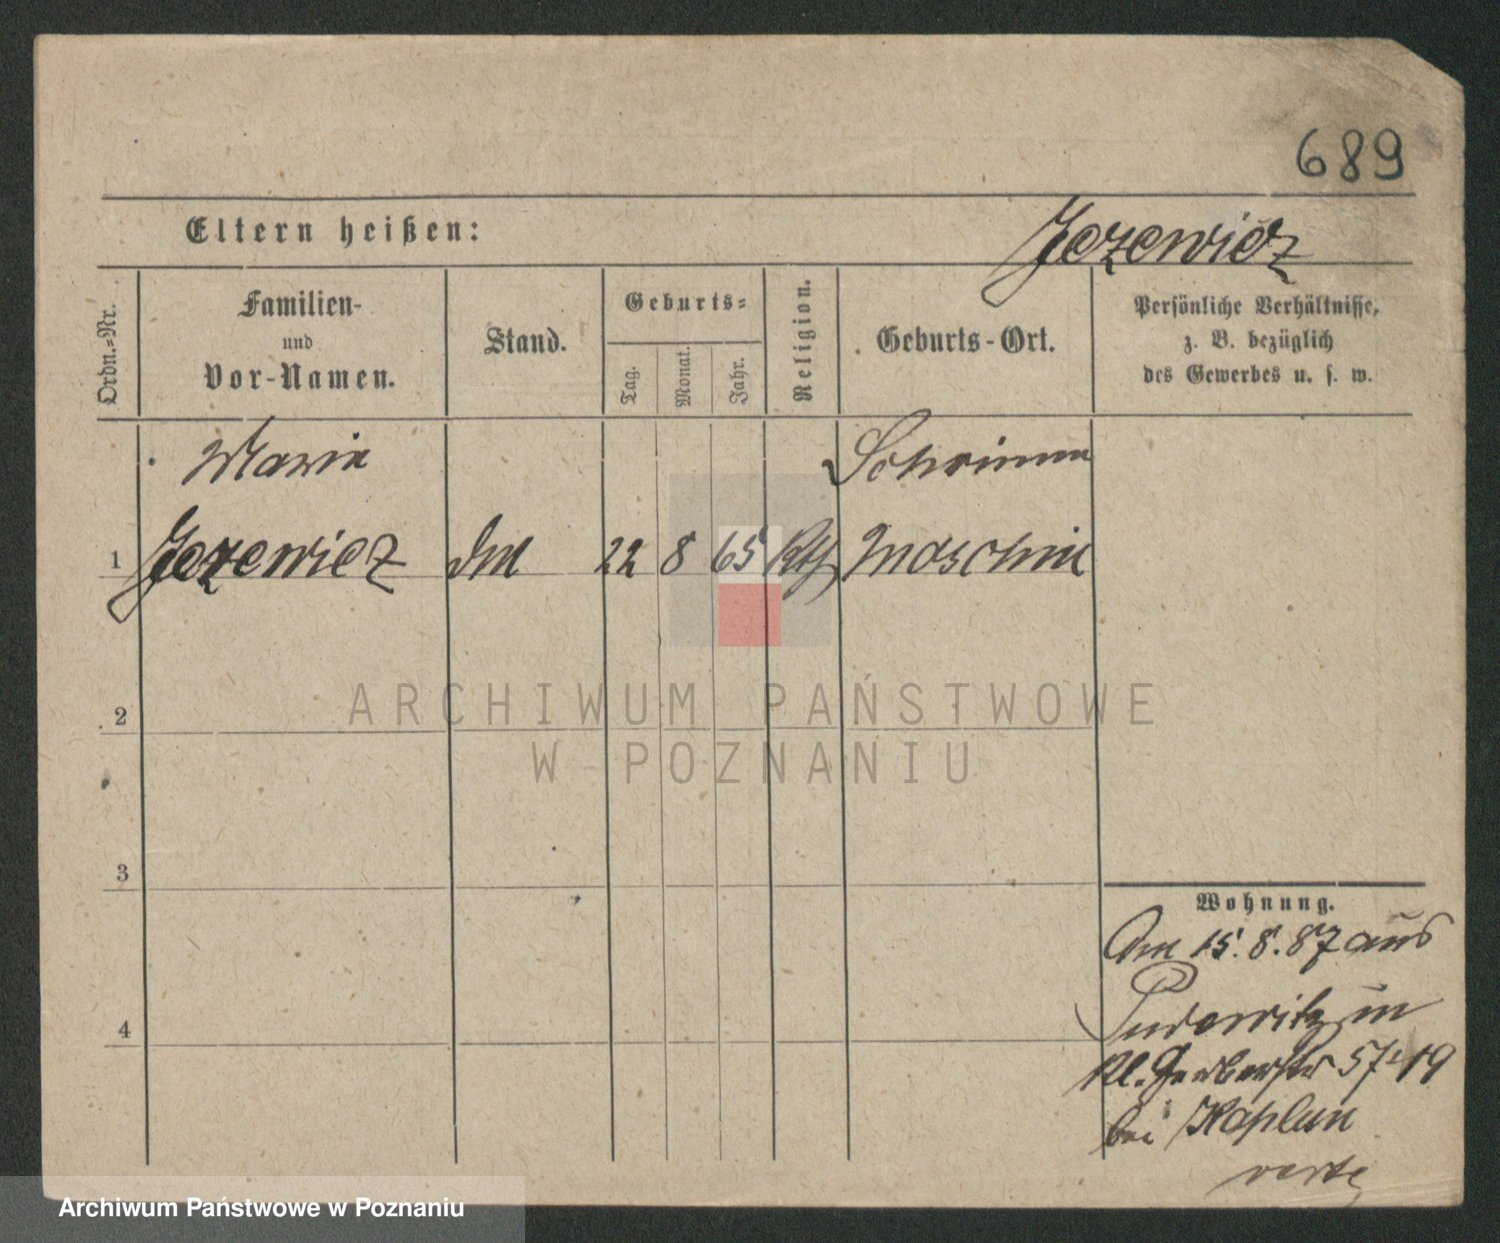 689
Eltern heißen:
Jezewicz
Ordn.-Nr.
Familien-
und
Vor-Namen.
Stand.
Geburts-
Tag.
Monat.
Jahr.
Religion.
Geburts-Ort.
Persönliche Verhältnisse,
z. B. bezüglich
des Gewerbes u. s. w.
Marie
Schrimm
1 Jezewicz 22 8 65 Kth Moschin
2
3
4
ARCHIWUM PAŃSTWOWE
W POZNANIU
Wohnung.
Am 15.8.87 aus
Pudewitz in
Kl. Gerberstr 57/19
bei Kaplan
verte
Archiwum Państwowe w Poznaniu